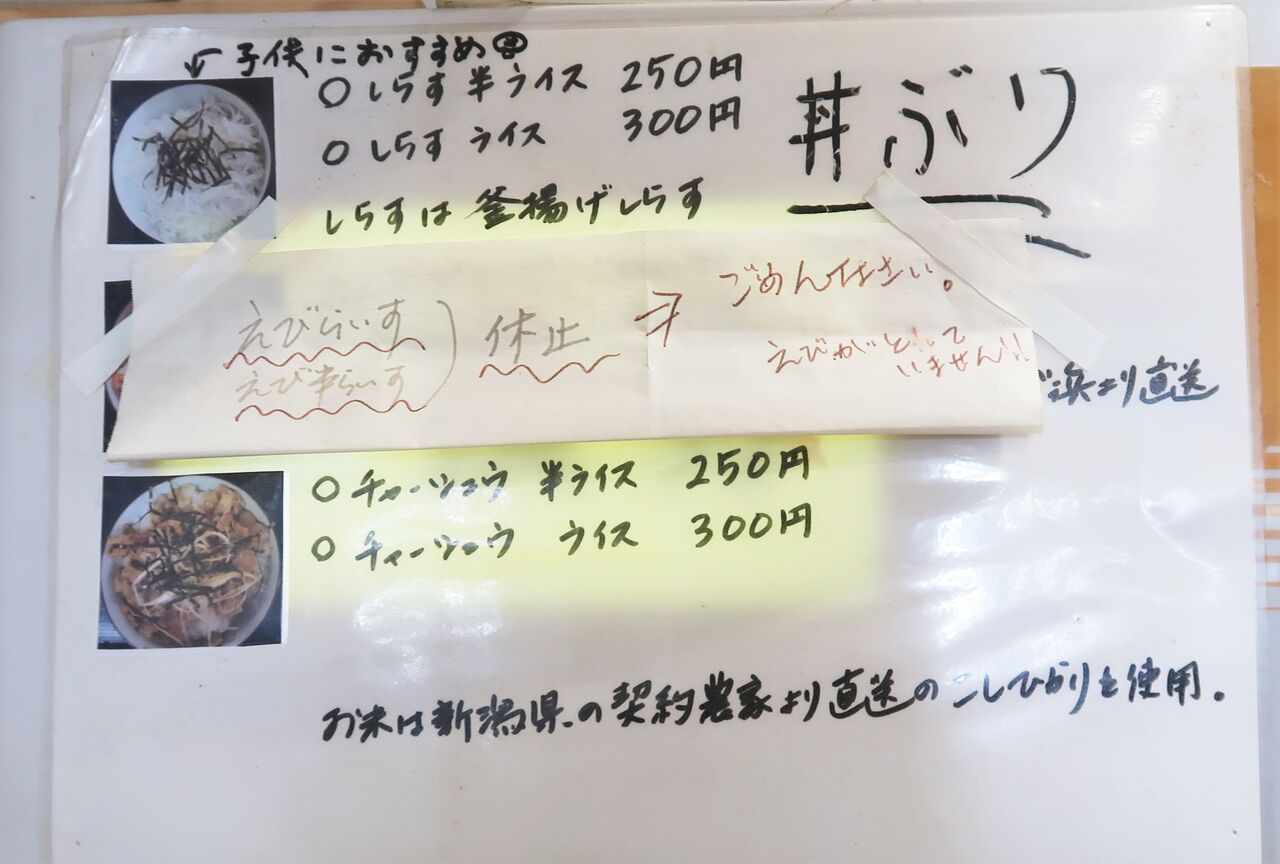 子供におすすめ
○しらす 半ライス 250円
○しらす ライス 300円
丼ぶり
しらすは釜揚げしらす
えびらいす
えび半らいす
休止
⇒
ごめんなさい。
えびがとれて
いません!!
浜より直送
○チャーシュウ 半ライス 250円
○チャーシュウ ライス 300円
お米は新潟県の契約農家より直送のこしひかりを使用。